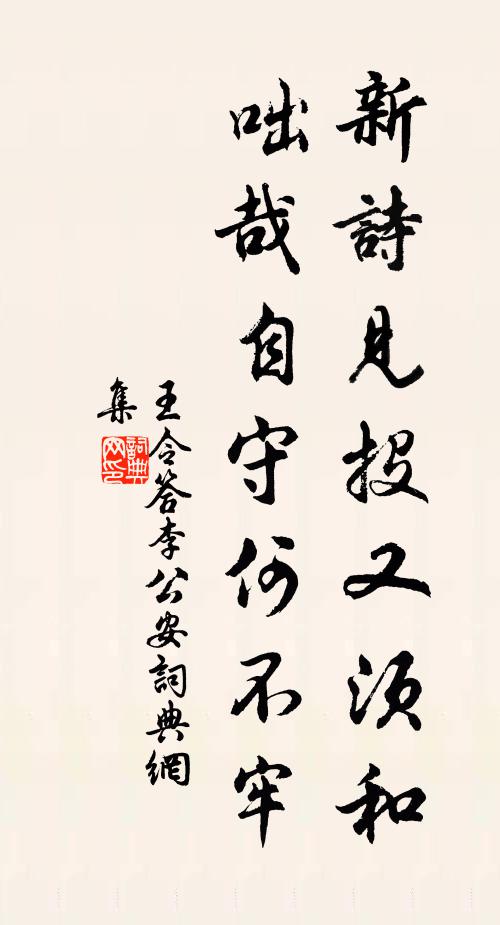 新詩見投又須和
咄哉自守何不牢
王令答李公安詞典網
集
詞典網印